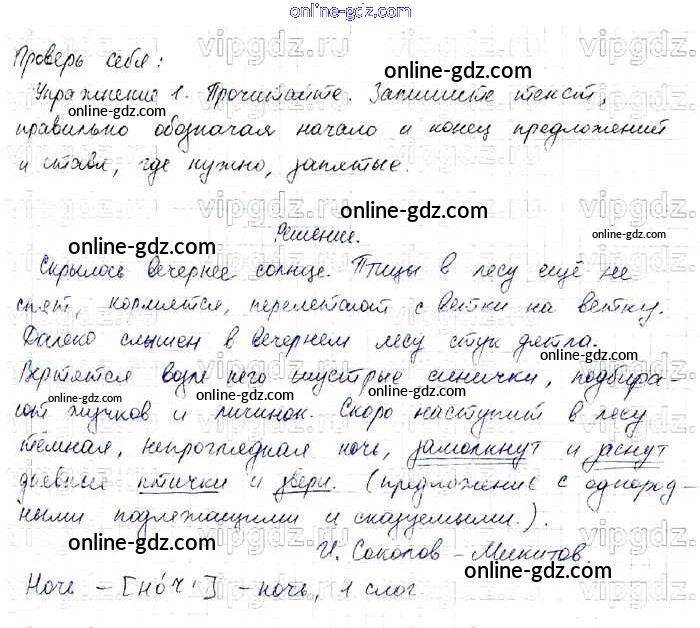 Проверь себя:
Упражнение 1. Прочитайте. Запишите текст,
правильно обозначая начало и конец предложений
и ставя, где нужно, запятые.
Решение.
Скрылось вечернее солнце. Птицы в лесу ещё не
спят, кормятся, перелетают с ветки на ветку.
Далеко слышен в вечернем лесу стук дятла.
Вертятся возле него шустрые синички, подбира-
ют жучков и личинок. Скоро наступит в лесу
тёмная, непроглядная ночь, замолкнут и заснут
дневные птички и звери. (предложение с однород-
ными подлежащими и сказуемыми.).
И. Соколов - Микитов
Ночь - [но́ч'] - ночь, 1 слог
online-gdz.com
online-gdz.com
online-gdz.com
online-gdz.com
online-gdz.com
online-gdz.com
online-gdz.com
online-gdz.com
online-gdz.com
online-gdz.com
online-gdz.com
online-gdz.com
online-gdz.com